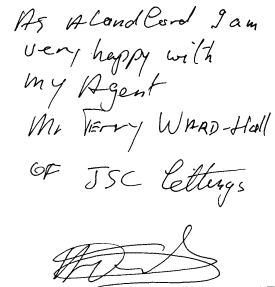 As A Landlord I am
very happy with
my Agent
Mr Terry WARD-Hall
OF JSC lettings